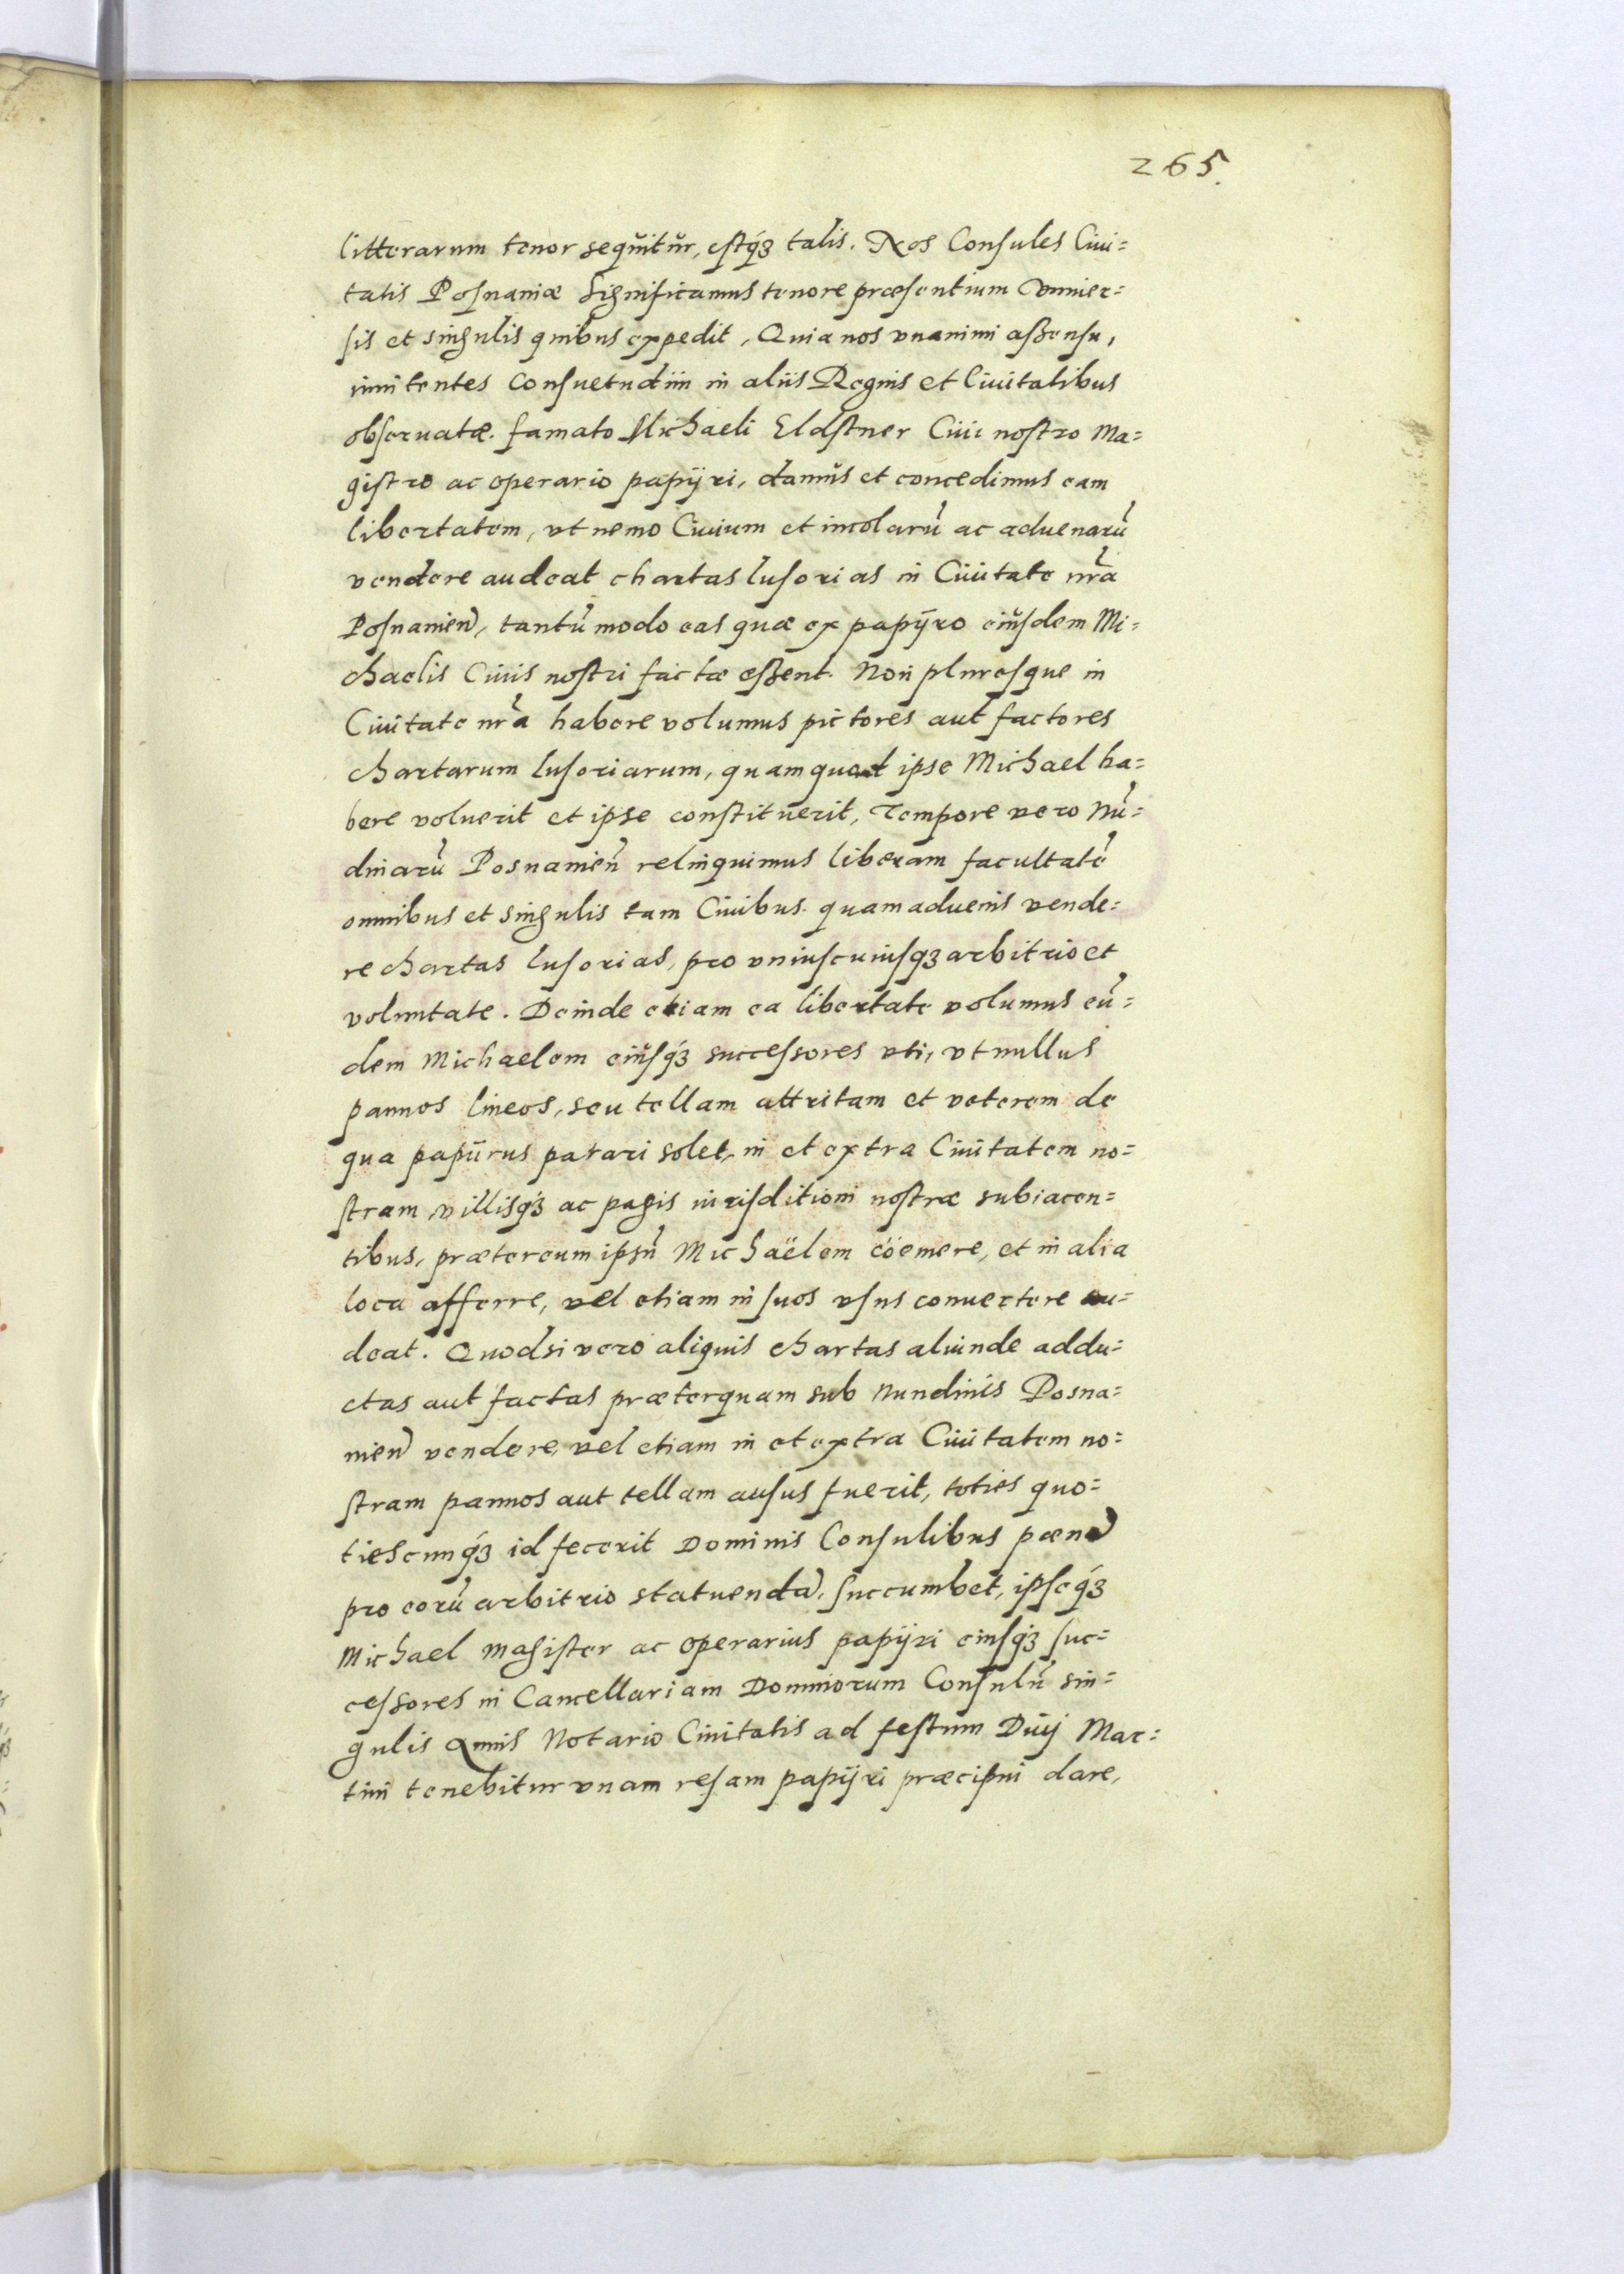 265.
litterarum tenor sequitur, estq́ꝫ talis. Nos Consules Ciui=
tatis Posnaniæ Significamus tenore præsentium Vniuer=
sis et singulis quibus expedit, Quia nos vnanimi assensu,
innitentes Consuetudini in aliis Regnis et Ciuitatibus
obseruatæ. famato Michaeli Eldstner Ciui nostro Ma=
gistro ac operario papÿri, damus et concedimus eam
libertatem, vt nemo Ciuium et incolarū ac aduenarū
vendere audeat chartas lusorias in Ciuitate nr̄a
Posnanien̄, tantū modo eas quæ ex papÿro eiusdem Mi=
chaelis Ciuis nostri factæ essent. Non pluresque in
Ciuitate nr̄a habere volumus pictores aut factores
chartarum lusoriarum, quam quod ipse Michael ha=
bere voluerit et ipse constituerit, Tempore vero Nū=
dinarū Posnanien̄ relinquimus liberam facultatē
omnibus et singulis tam Ciuibus. quam aduenis vende=
re chartas lusorias, pro vniuscuiusqꝫ arbitrio et
voluntate. Deinde etiam ea libertate volumus eū=
dem Michaelem eiusq́ꝫ successores vti, vt nullus
pannos lineos, seu tellam attritam et veterem de
qua papÿrus parari solet, in et extra Ciuitatem no=
stram, villisq́ꝫ ac pagis iurisditioni nostræ subiacen=
tibus, præter eum ipsū Michaëlem cöemere, et in alia
loca afferre, vel etiam in suos vsus conuertere au=
deat. Quodsi vero aliquis chartas aliunde addu=
ctas aut factas præterquam sub Nundinis Posna=
nien̄ vendere, vel etiam in et extra Ciuitatem no=
stram pannos aut tellam ausus fuerit, toties quo=
tiescunq́ꝫ id fecerit Dominis Consulibus pœna
pro eorū arbitrio statuenda, succumbet, ipseq́ꝫ
Michael Magister ac operarius papÿri eiusq́ꝫ suc=
cessores in Cancellariam Dominorum Consulū sin=
gulis Annis Notario Ciuitatis ad festum Diuj Mar=
tini tenebitur vnam resam papÿri præcipui dare,